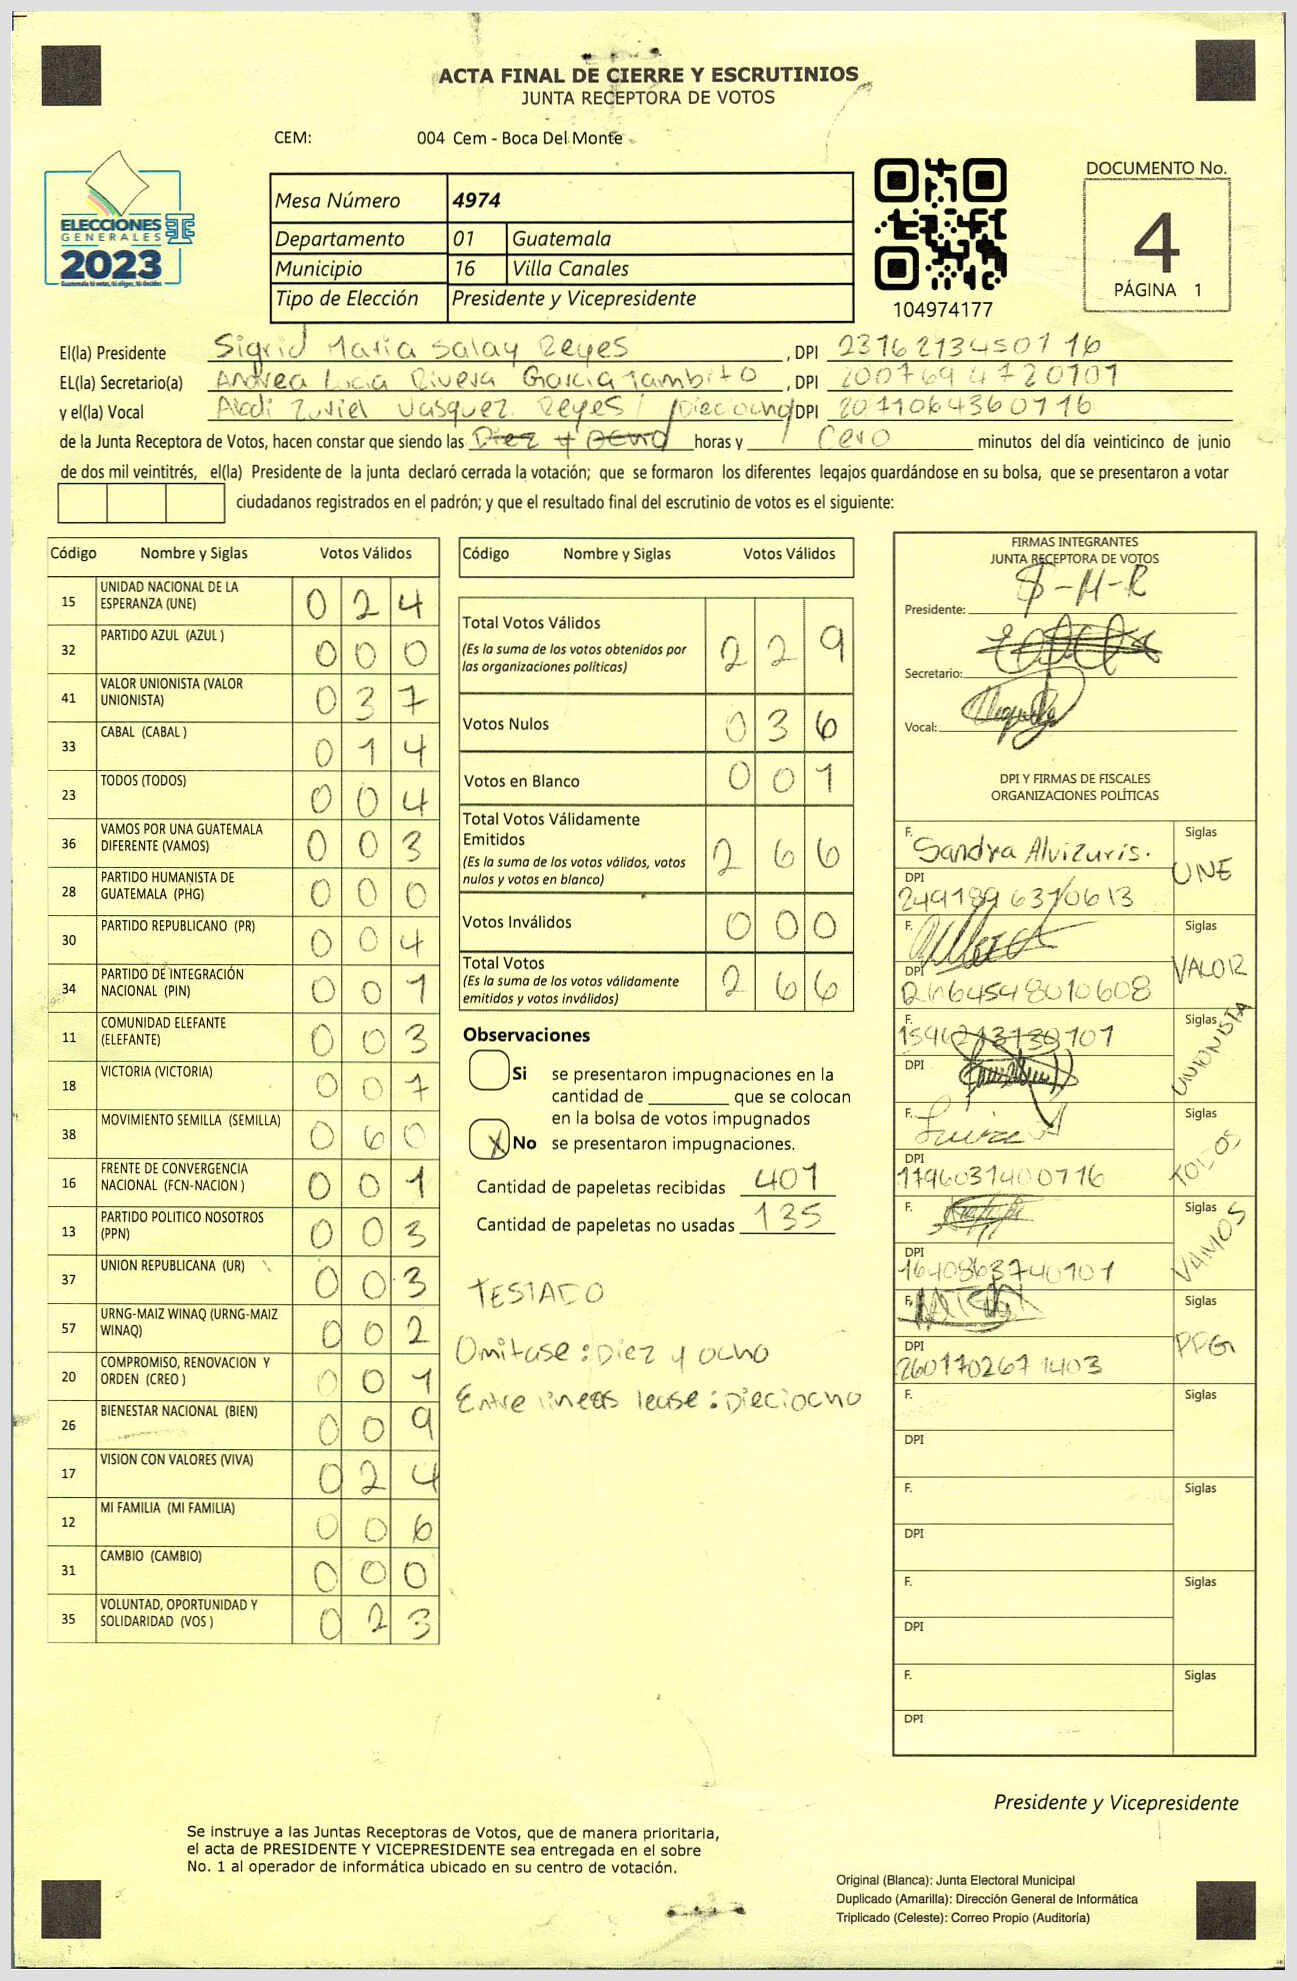 ACTA FINAL DE CIERRE Y ESCRUTINIOS
JUNTA RECEPTORA DE VOTOS
CEM: 004 Cem - Boca Del Monte
ELECCIONES
GENERALES
2023
Guatemala tú votas, tú eliges, tú decides
Mesa Número 4974
Departamento 01 Guatemala
Municipio 16 Villa Canales
Tipo de Elección Presidente y Vicepresidente
104974177
DOCUMENTO No.
4
PÁGINA 1
El(la) Presidente Sigrid Maria Salay Reyes, DPI 2316213450116
EL(la) Secretario(a) Andrea Lucia Rivera Garcia Tambito, DPI 2007694720101
y el(la) Vocal Vasquez Reyes / Dieciocho / DPI 2011064360116
de la Junta Receptora de Votos, hacen constar que siendo las Diez y ocho horas y Cero minutos del día veinticinco de junio
de dos mil veintitrés, el(la) Presidente de la junta declaró cerrada la votación; que se formaron los diferentes legajos quardándose en su bolsa, que se presentaron a votar
ciudadanos registrados en el padrón; y que el resultado final del escrutinio de votos es el siguiente:
Código Nombre y Siglas Votos Válidos
15 UNIDAD NACIONAL DE LA ESPERANZA (UNE) 0 2 4
32 PARTIDO AZUL (AZUL ) 0 0 0
41 VALOR UNIONISTA (VALOR UNIONISTA) 0 3 7
33 CABAL (CABAL ) 0 1 4
23 TODOS (TODOS) 0 0 4
36 VAMOS POR UNA GUATEMALA DIFERENTE (VAMOS) 0 0 3
28 PARTIDO HUMANISTA DE GUATEMALA (PHG) 0 0 0
30 PARTIDO REPUBLICANO (PR) 0 0 4
34 PARTIDO DE INTEGRACIÓN NACIONAL (PIN) 0 0 1
11 COMUNIDAD ELEFANTE (ELEFANTE) 0 0 3
18 VICTORIA (VICTORIA) 0 0 7
38 MOVIMIENTO SEMILLA (SEMILLA) 0 6 0
16 FRENTE DE CONVERGENCIA NACIONAL (FCN-NACION ) 0 0 1
13 PARTIDO POLITICO NOSOTROS (PPN) 0 0 3
37 UNION REPUBLICANA (UR) 0 0 3
57 URNG-MAIZ WINAQ (URNG-MAIZ WINAQ) 0 0 2
20 COMPROMISO, RENOVACION Y ORDEN (CREO ) 0 0 1
26 BIENESTAR NACIONAL (BIEN) 0 0 9
17 VISION CON VALORES (VIVA) 0 2 4
12 MI FAMILIA (MI FAMILIA) 0 0 6
31 CAMBIO (CAMBIO) 0 0 0
35 VOLUNTAD, OPORTUNIDAD Y SOLIDARIDAD (VOS ) 0 2 3
Código Nombre y Siglas Votos Válidos
Total Votos Válidos 2 2 9
(Es la suma de los votos obtenidos por
las organizaciones politicas)
Votos Nulos 0 3 6
Votos en Blanco 0 0 1
Total Votos Válidamente
Emitidos 2 6 6
(Es la suma de los votos válidos, votos
nulos y votos en blanco)
Votos Inválidos 0 0 0
Total Votos 2 6 6
(Es la suma de los votos válidamente
emitidos y votos inválidos)
Observaciones
Si se presentaron impugnaciones en la
cantidad de ________ que se colocan
en la bolsa de votos impugnados
X No se presentaron impugnaciones.
Cantidad de papeletas recibidas 401
Cantidad de papeletas no usadas 135
TESTADO
Omitase : Diez y ocho
Entre lineas lease : Dieciocho
FIRMAS INTEGRANTES
JUNTA RECEPTORA DE VOTOS
Presidente: S-M-R
Secretario:
Vocal:
DPI Y FIRMAS DE FISCALES
ORGANIZACIONES POLÍTICAS
F. Sandra Alvizuris. Siglas UNE
DPI 249189 6310613
F. Siglas VALOR
DPI
F. Siglas UNIONISTA
DPI
F. Siglas TODOS
DPI 1796031400716
F. Siglas VAMOS
DPI 1640863740101
F. Siglas PPG
DPI 2601702671403
F. Siglas
DPI
F. Siglas
DPI
F. Siglas
DPI
F. Siglas
DPI
Presidente y Vicepresidente
Se instruye a las Juntas Receptoras de Votos, que de manera prioritaria,
el acta de PRESIDENTE Y VICEPRESIDENTE sea entregada en el sobre
No. 1 al operador de informática ubicado en su centro de votación.
Original (Blanca): Junta Electoral Municipal
Duplicado (Amarilla): Dirección General de Informática
Triplicado (Celeste): Correo Propio (Auditoría)